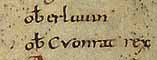 ob erluuin
ob Cvonrat rex